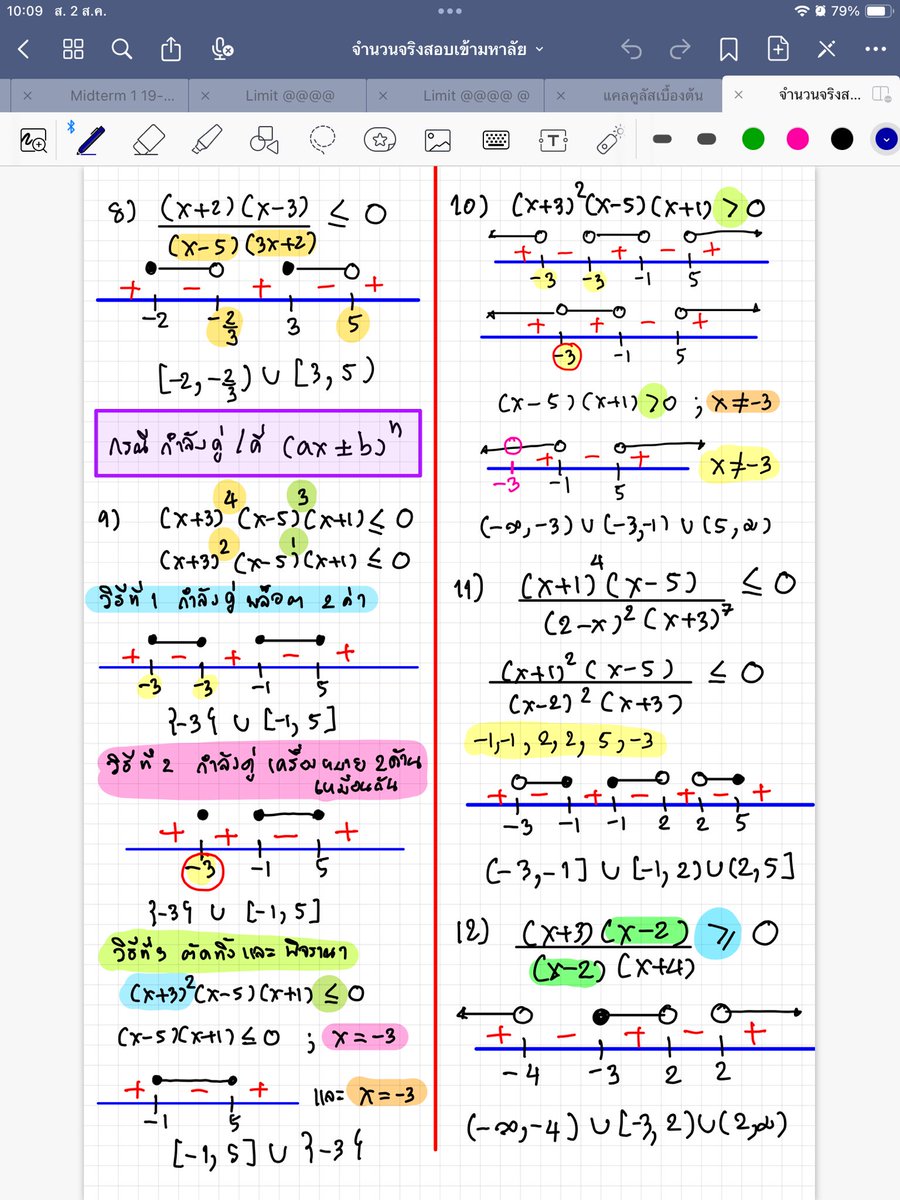 10:09 ส. 2 ส.ค.
79%
จำนวนจริงสอบเข้ามหาลัย
Midterm 1 19-...
Limit @@@@
Limit @@@@ @
แคลคูลัสเบื้องต้น
จำนวนจริงส...
8) (x+2)(x-3) / (x-5)(3x+2) ≤ 0
+ - + - +
-2 -2/3 3 5
[-2, -2/3) ∪ [3, 5)
กรณี กำลังคู่ / คี่ (ax ± b)ⁿ
9) (x+3)⁴(x-5)³(x+1) ≤ 0
(x+3)²(x-5)¹(x+1) ≤ 0
วิธีที่ 1 กำลังคู่ พล็อต 2 ค่า
+ - + - +
-3 -3 -1 5
{-3} ∪ [-1, 5]
วิธีที่ 2 กำลังคู่ เครื่องหมาย 2 ด้าน
เหมือนกัน
+ + - +
-3 -1 5
{-3} ∪ [-1, 5]
วิธีที่ 3 ตัดทิ้ง และ พิจารณา
(x+3)²(x-5)(x+1) ≤ 0
(x-5)(x+1) ≤ 0 ; x = -3
+ - + และ x = -3
-1 5
[-1, 5] ∪ {-3}
10) (x+3)²(x-5)(x+1) > 0
+ - + - +
-3 -3 -1 5
+ + - +
-3 -1 5
(x-5)(x+1) > 0 ; x ≠ -3
+ - + x ≠ -3
-3 -1 5
(-∞, -3) ∪ (-3, -1) ∪ (5, ∞)
11) (x+1)⁴(x-5) / (2-x)²(x+3)⁷ ≤ 0
(x+1)²(x-5) / (x-2)²(x+3) ≤ 0
-1, -1, 2, 2, 5, -3
+ - + - + - +
-3 -1 -1 2 2 5
(-3, -1] ∪ [-1, 2) ∪ (2, 5]
12) (x+3)(x-2) / (x-2)(x+4) ≥ 0
+ - + - +
-4 -3 2 2
(-∞, -4) ∪ [-3, 2) ∪ (2, ∞)